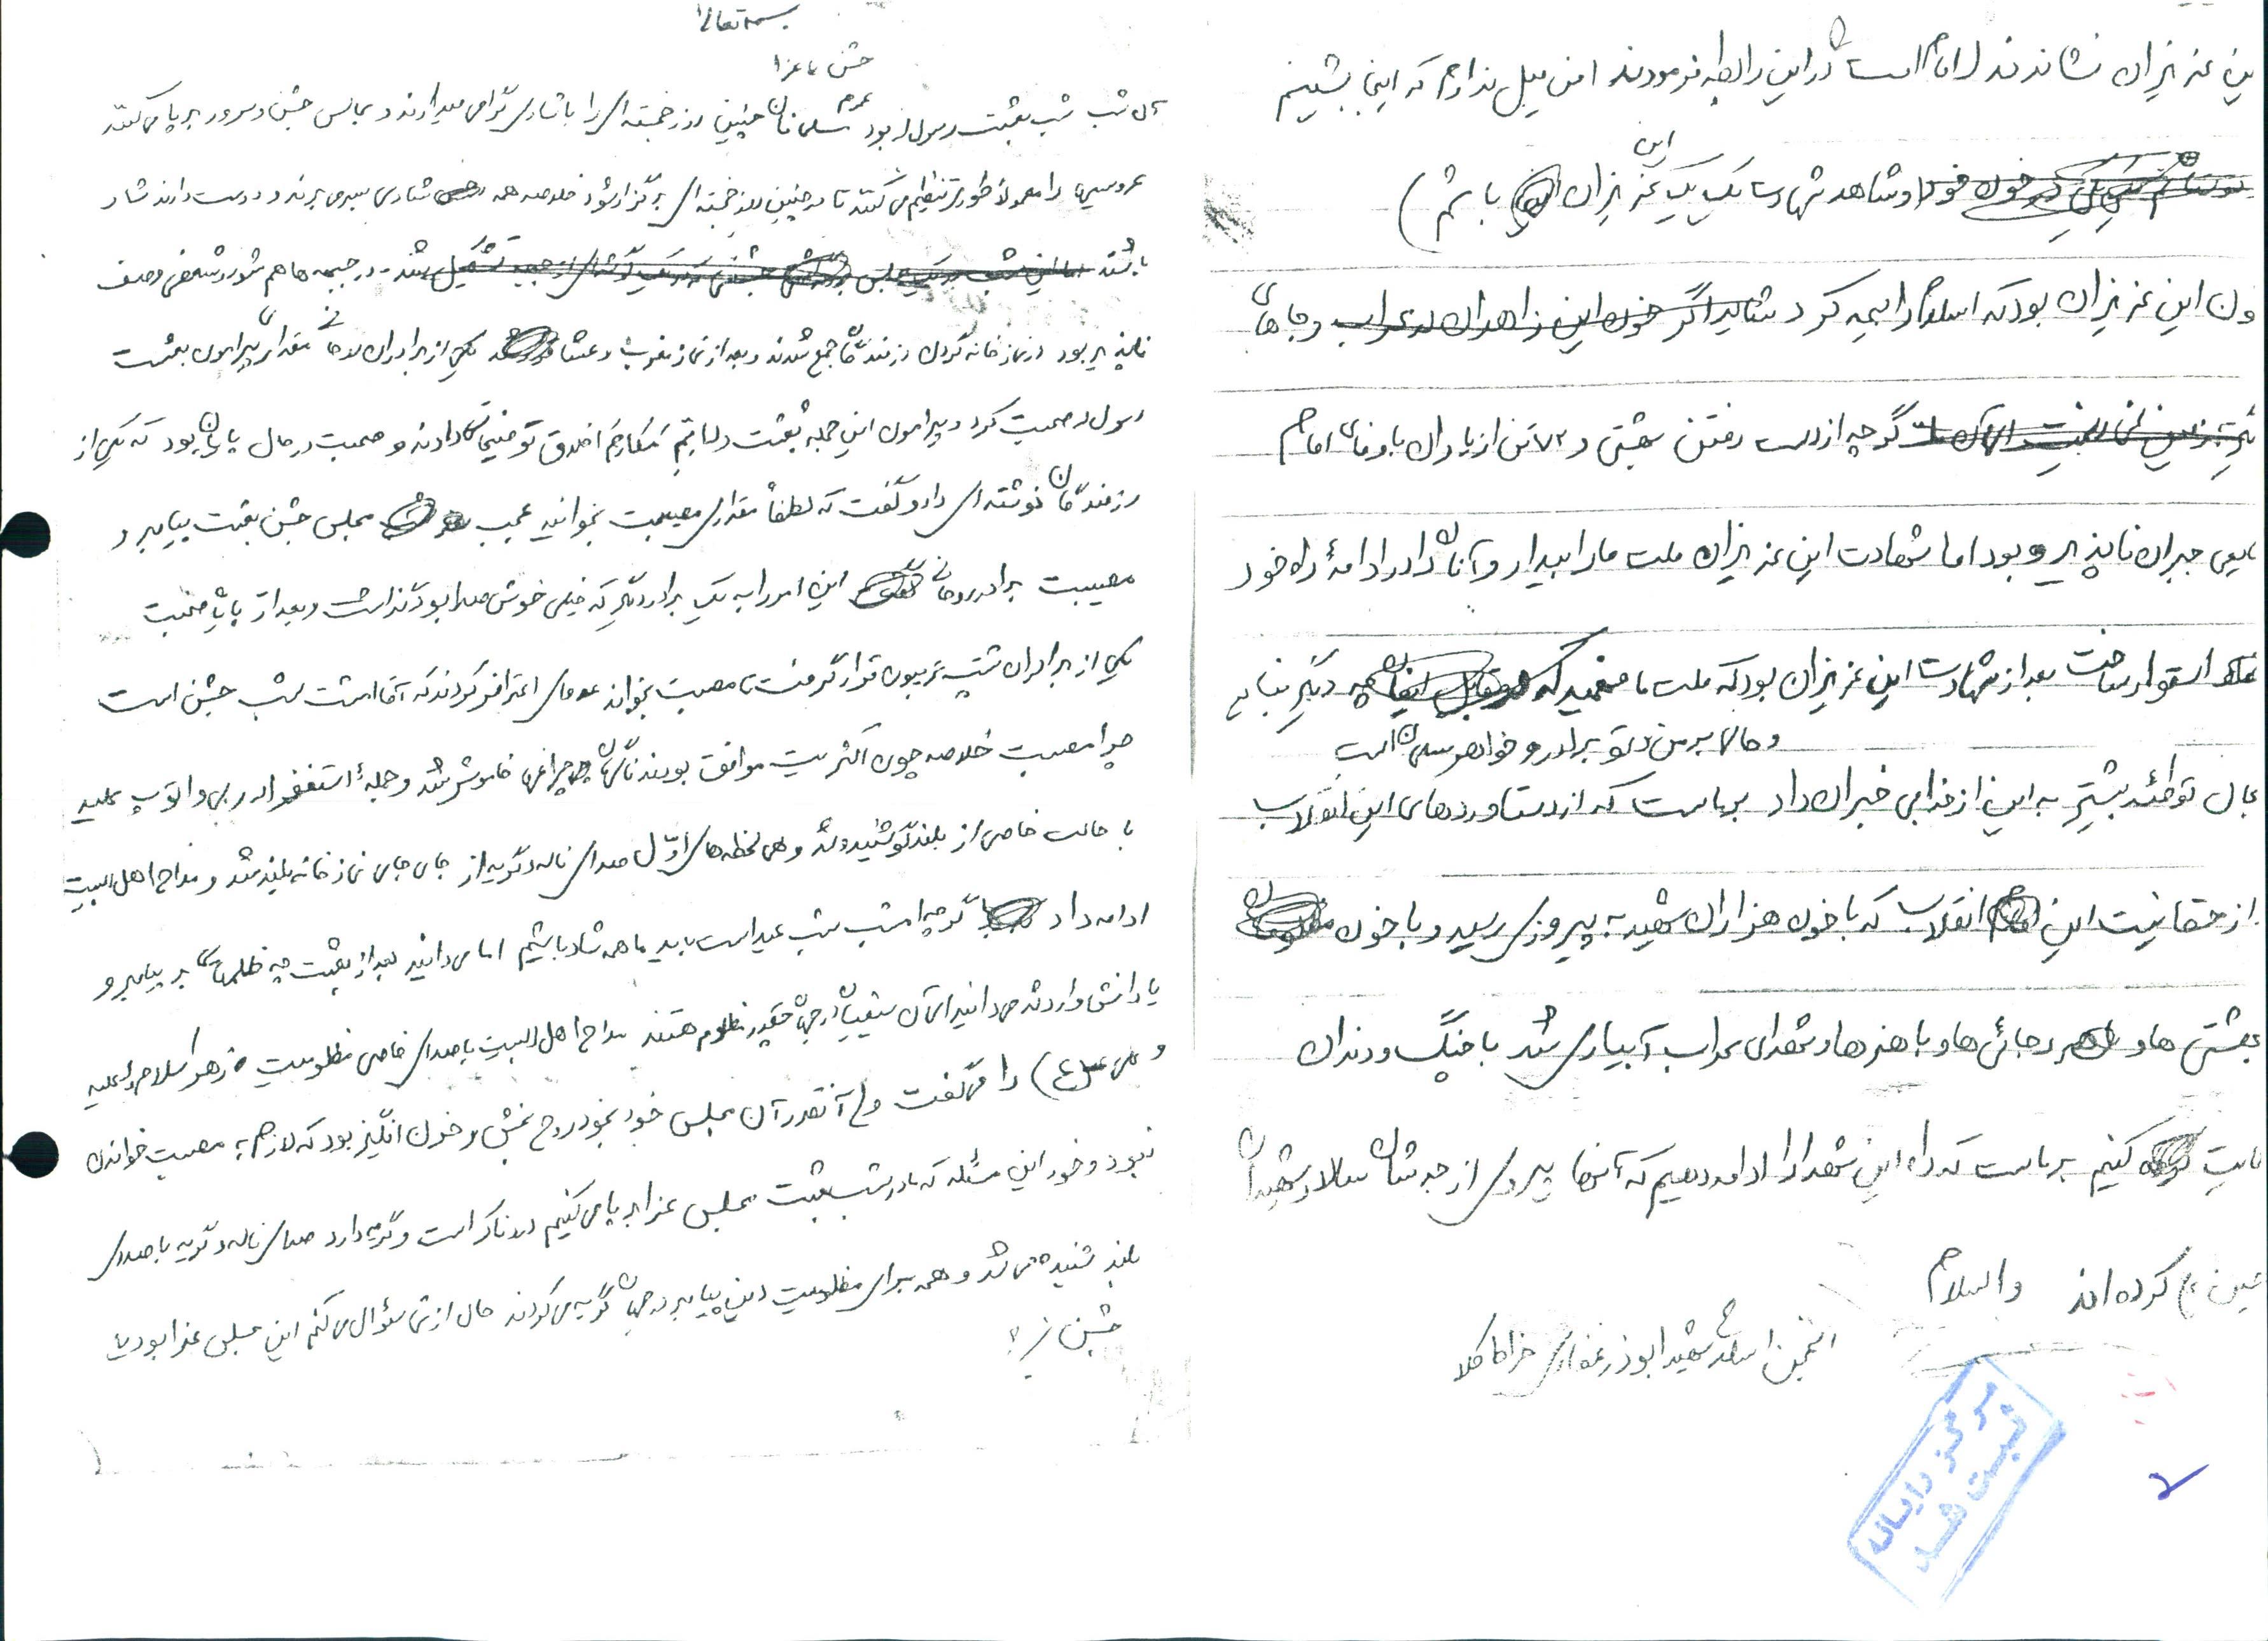 ین عزیزان نشاندند امام امت در این رابطه فرمودند من میل ندارم که اینجا بنشینم
این
و شاهد شهادت یک یک عزیزان باشم)
ون این عزیزان بود که اسلام را بیمه کرد شاید اگر خون این زاهدان در محراب و جاهای
گرچه از دست رفتن بهشتی و ۷۲ تن از یاران باوفای امام
جبران ناپذیر بود اما شهادت این عزیزان ملت ما را بیدار و آنان را در ادامهٔ راه خود
استوار ساخت بعد از شهادت این عزیزان بود که ملت ما فهمید که چه دیگر نباید
و حال بر من و تو برادر و خواهر مسلمان است
مجال توطئه بیشتر به این از خدا بی خبران داد بر ماست که از دستاوردهای این انقلاب
از حقانیت این انقلاب که با خون هزاران شهید به پیروزی رسید و با خون
بهشتی ها و رجائی ها و باهنرها و شهدای محراب آبیاری شد با چنگ و دندان
کنیم بر ماست که راه این شهدا را ادامه دهیم که آنها پیروی از جدشان سالار شهیدان
کرده اند والسلام
انجمن اسلامی شهید ابوذر غفاری خراطکلا
مرکز رایانه
ثبت شد
بسمه تعالی
جشن یا عزا
آن شب شب بعثت رسول الله بود مردم مسلمان چنین روز خجسته ای را با شادی گرامی میدارند و مجالس جشن و سرور بر پا می کنند
عروسیها را معمولاً طوری تنظیم می کنند تا در چنین روز خجسته ای برگزار شود خلاصه همه در شادی بسر می برند و دوست دارند شاد
باشند در جبهه ها هم شور و شعفی وصف
ناپذیر بود در نماز خانه گردان رزمندگان جمع شدند و بعد از نماز مغرب و عشا یکی از برادران روحانی مقداری پیرامون بعثت
رسول الله صحبت کرد و پیرامون این جمله بعثت لاتمم مکارم اخلاق توضیحاتی دادند و صحبت در حال پایان بود که یکی از
رزمندگان نوشته ای داد و گفت که لطفاً مقداری مصیبت بخوانید عجب مجلس جشن بعثت پیامبر و
مصیبت برادر روحانی این امر را به یک برادر دیگر که خیلی خوش صدا بود گذاشت و بعد از پایان صحبت
یکی از برادران پشت تریبون قرار گرفت تا مصیبت بخواند عده ای اعتراض کردند که آقا امشب شب جشن است
چرا مصیبت خلاصه چون اکثریت موافق بودند ناگهان چراغها خاموش شد و جملهٔ استغفرالله ربی و اتوب الیه
با حالت خاصی از بلندگو شنیده شد و همان لحظه های اوّل صدای ناله و گریه از جای جای نماز خانه بلند شد و مداح اهل البیت
ادامه داد گرچه امشب شب عید است باید ما همه شاد باشیم اما می دانید بعد از بعثت چه ظلمهایی بر پیامبر و
یارانش وارد شد می دانید الآن شیعیان در جهان چقدر مظلوم هستند مداح اهل البیت با صدای خاص مظلومیت زهرا سلام الله علیه
و علی (ع) را می گفت ولی آنقدر آن مجلس خود بخود روح بخش و خون انگیز بود که لازم به مصیبت خواندن
نبود و خود این مسئله که ما در شب بعثت مجلس عزا بر پا می کنیم دردناک است و گریه دارد صدای ناله و گریه با صدای
بلند شنیده می شد و همه برای مظلومیت دین پیامبر در جهان گریه می کردند حال از شما سؤال می کنم این مجلس عزا بود یا
جشن